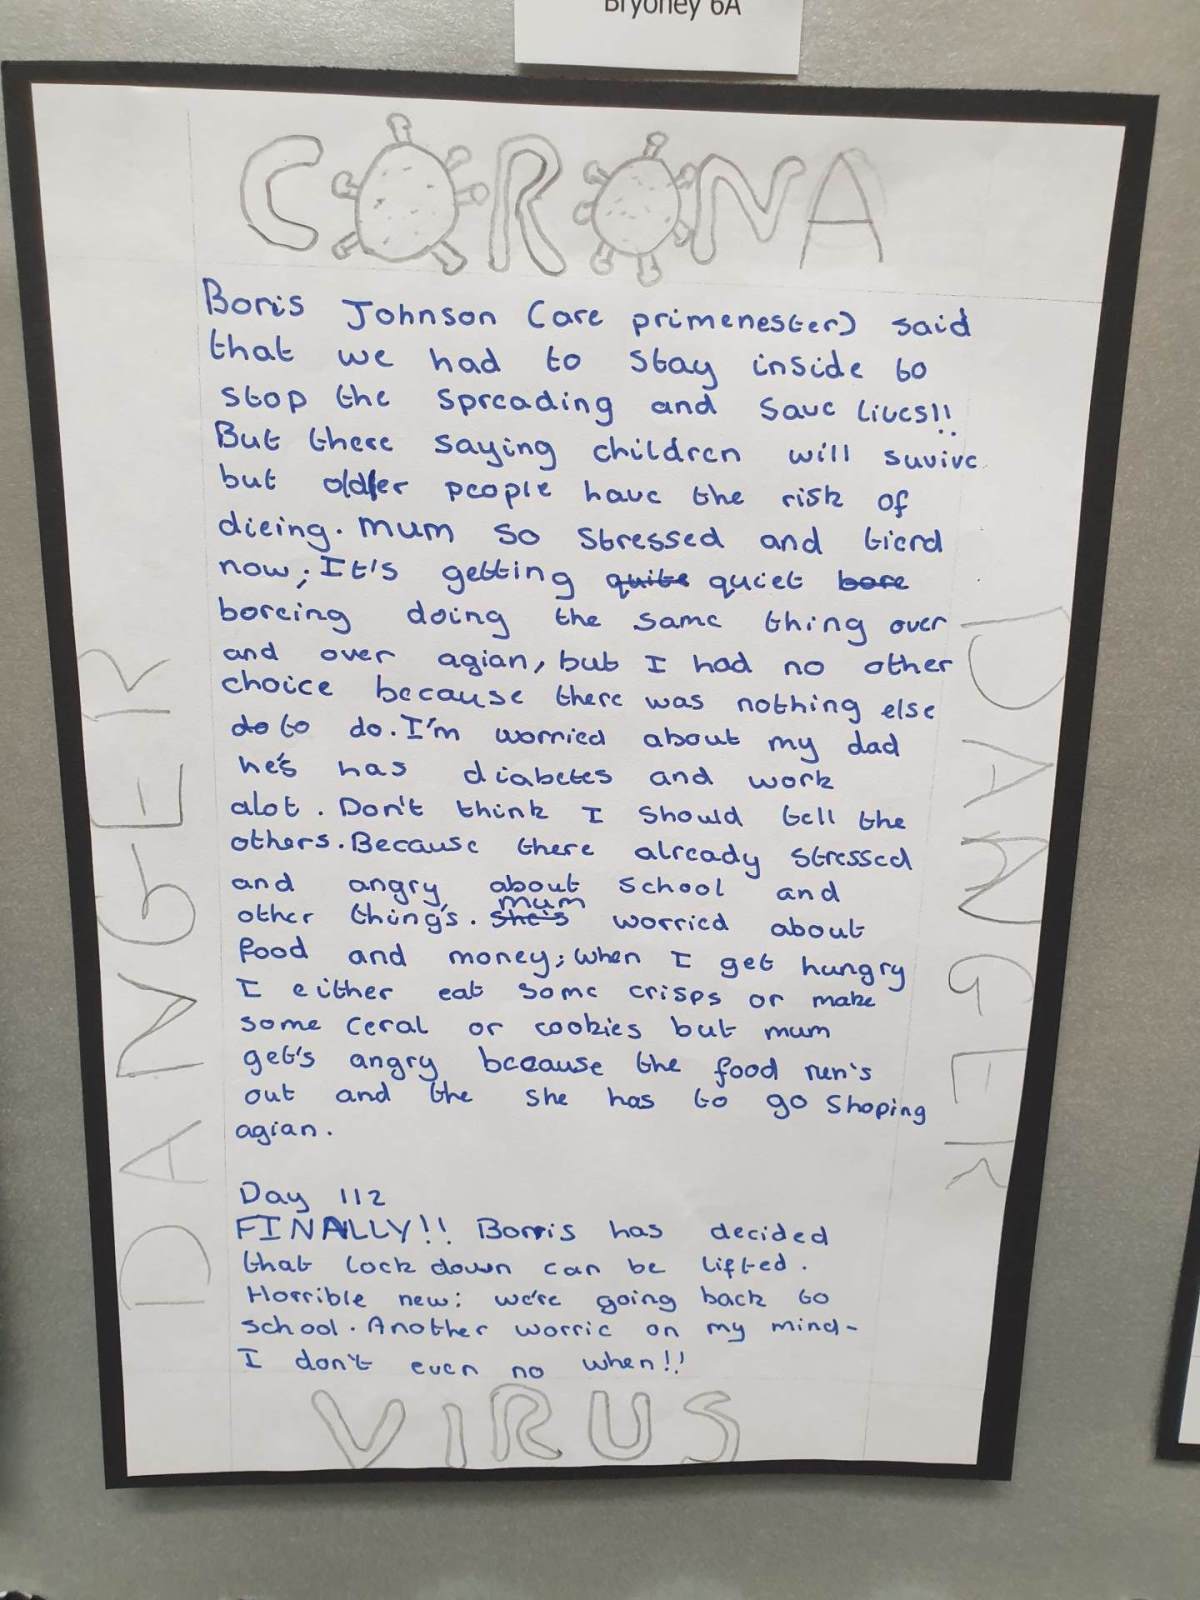 Bryoney 6A
CORONA
Boris Johnson (are primenester) said
that we had to stay inside to
stop the spreading and save lives!!
But there saying children will suvive
but older people have the risk of
dieing. Mum so stressed and tierd
now; It's getting quite quiet bore
boreing doing the same thing over
and over agian, but I had no other
choice because there was nothing else
do to do. I'm worried about my dad
he's has diabetes and work
alot. Don't think I should tell the
others. Because there already stressed
and angry about school and
mum
other thing's. she's worried about
food and money; when I get hungry
I either eat some crisps or make
some ceral or cookies but mum
get's angry because the food run's
out and the she has to go shoping
agian.
Day 112
FINALLY!! Borris has decided
that lock down can be lifted.
Horrible new: we're going back to
school. Another worrie on my mind-
I don't even no when!!
VIRUS
DANGER
DANGER